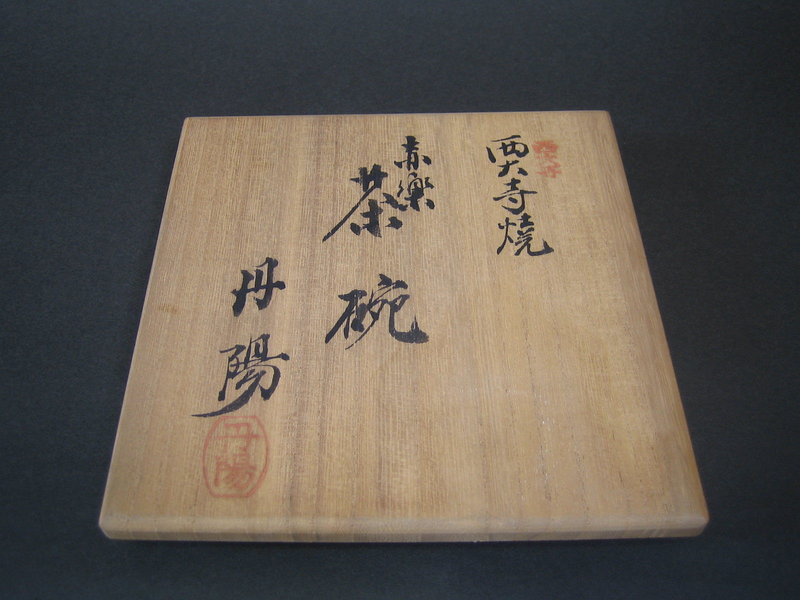 西大寺焼
赤樂
茶碗
丹陽
丹陽